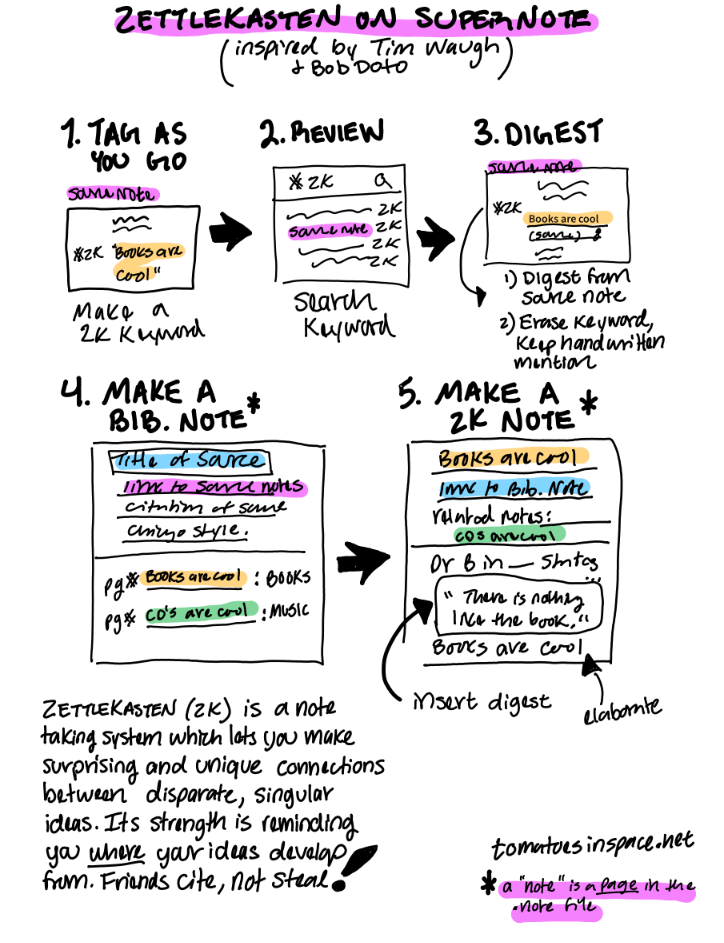 ZETTLEKASTEN ON SUPERNOTE
(inspired by Tim Waugh)
& Bob Doto
1. TAG AS
YOU GO
source note
*ZK "Books are
cool"
Make a
ZK Keyword
2. REVIEW
*ZK
ZK
source note ZK
ZK
ZK
Search
Keyword
3. DIGEST
source note
*ZK
Books are cool
(source)
1) Digest from
source note
2) Erase Keyword,
Keep handwritten
mention
4. MAKE A
BIB. NOTE *
Title of Source
link to source notes
citation of source
chicago style.
pg* BOOKS are cool : BOOKS
pg* CD'S are cool : MUSIC
5. MAKE A
ZK NOTE *
Books are cool
link to Bib. Note
related notes:
CDS are cool
Dr B in —
...
"There is nothing
like the book."
Books are cool
insert digest
elaborate
ZETTLEKASTEN (ZK) is a note
taking system which lets you make
surprising and unique connections
between disparate, singular
ideas. Its strength is reminding
you where your ideas develop
from. Friends Cite, not Steal!
tomatoesinspace.net
* a "note" is a page in the
.note file